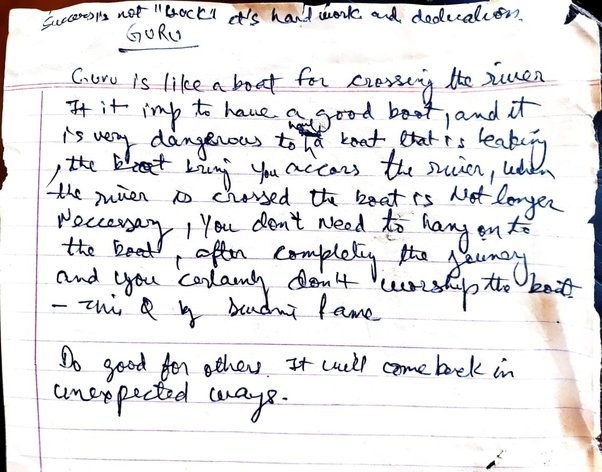 Success is not "Luck" it's hard work and dedication.
GURU
Guru is like a boat for crossing the river
It it imp to have a good boat, and it
is very dangerous to have a boat that is leaking
, the boat bring you accors the river, when
the river is crossed the boat is Not longer
Neccessary, You don't need to hang on to
the boat, after completiy the jouney
and you certainly don't worship the boat
- This Q by Swami Rama
Do good for others. It will come back in
unexpected ways.